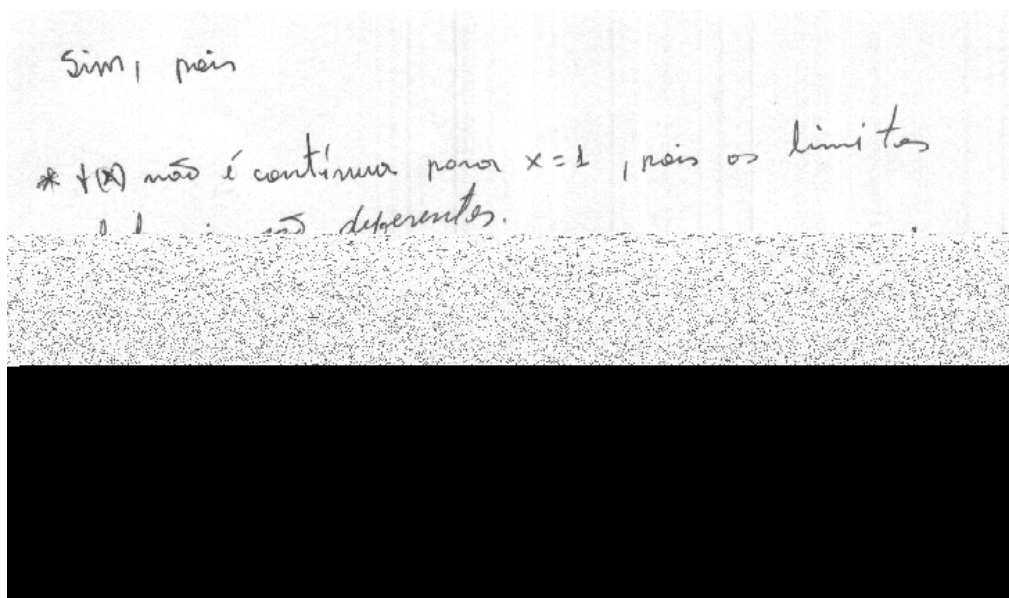 Sim, pois
* f(x) não é contínua para x=1, pois os limites
são diferentes.